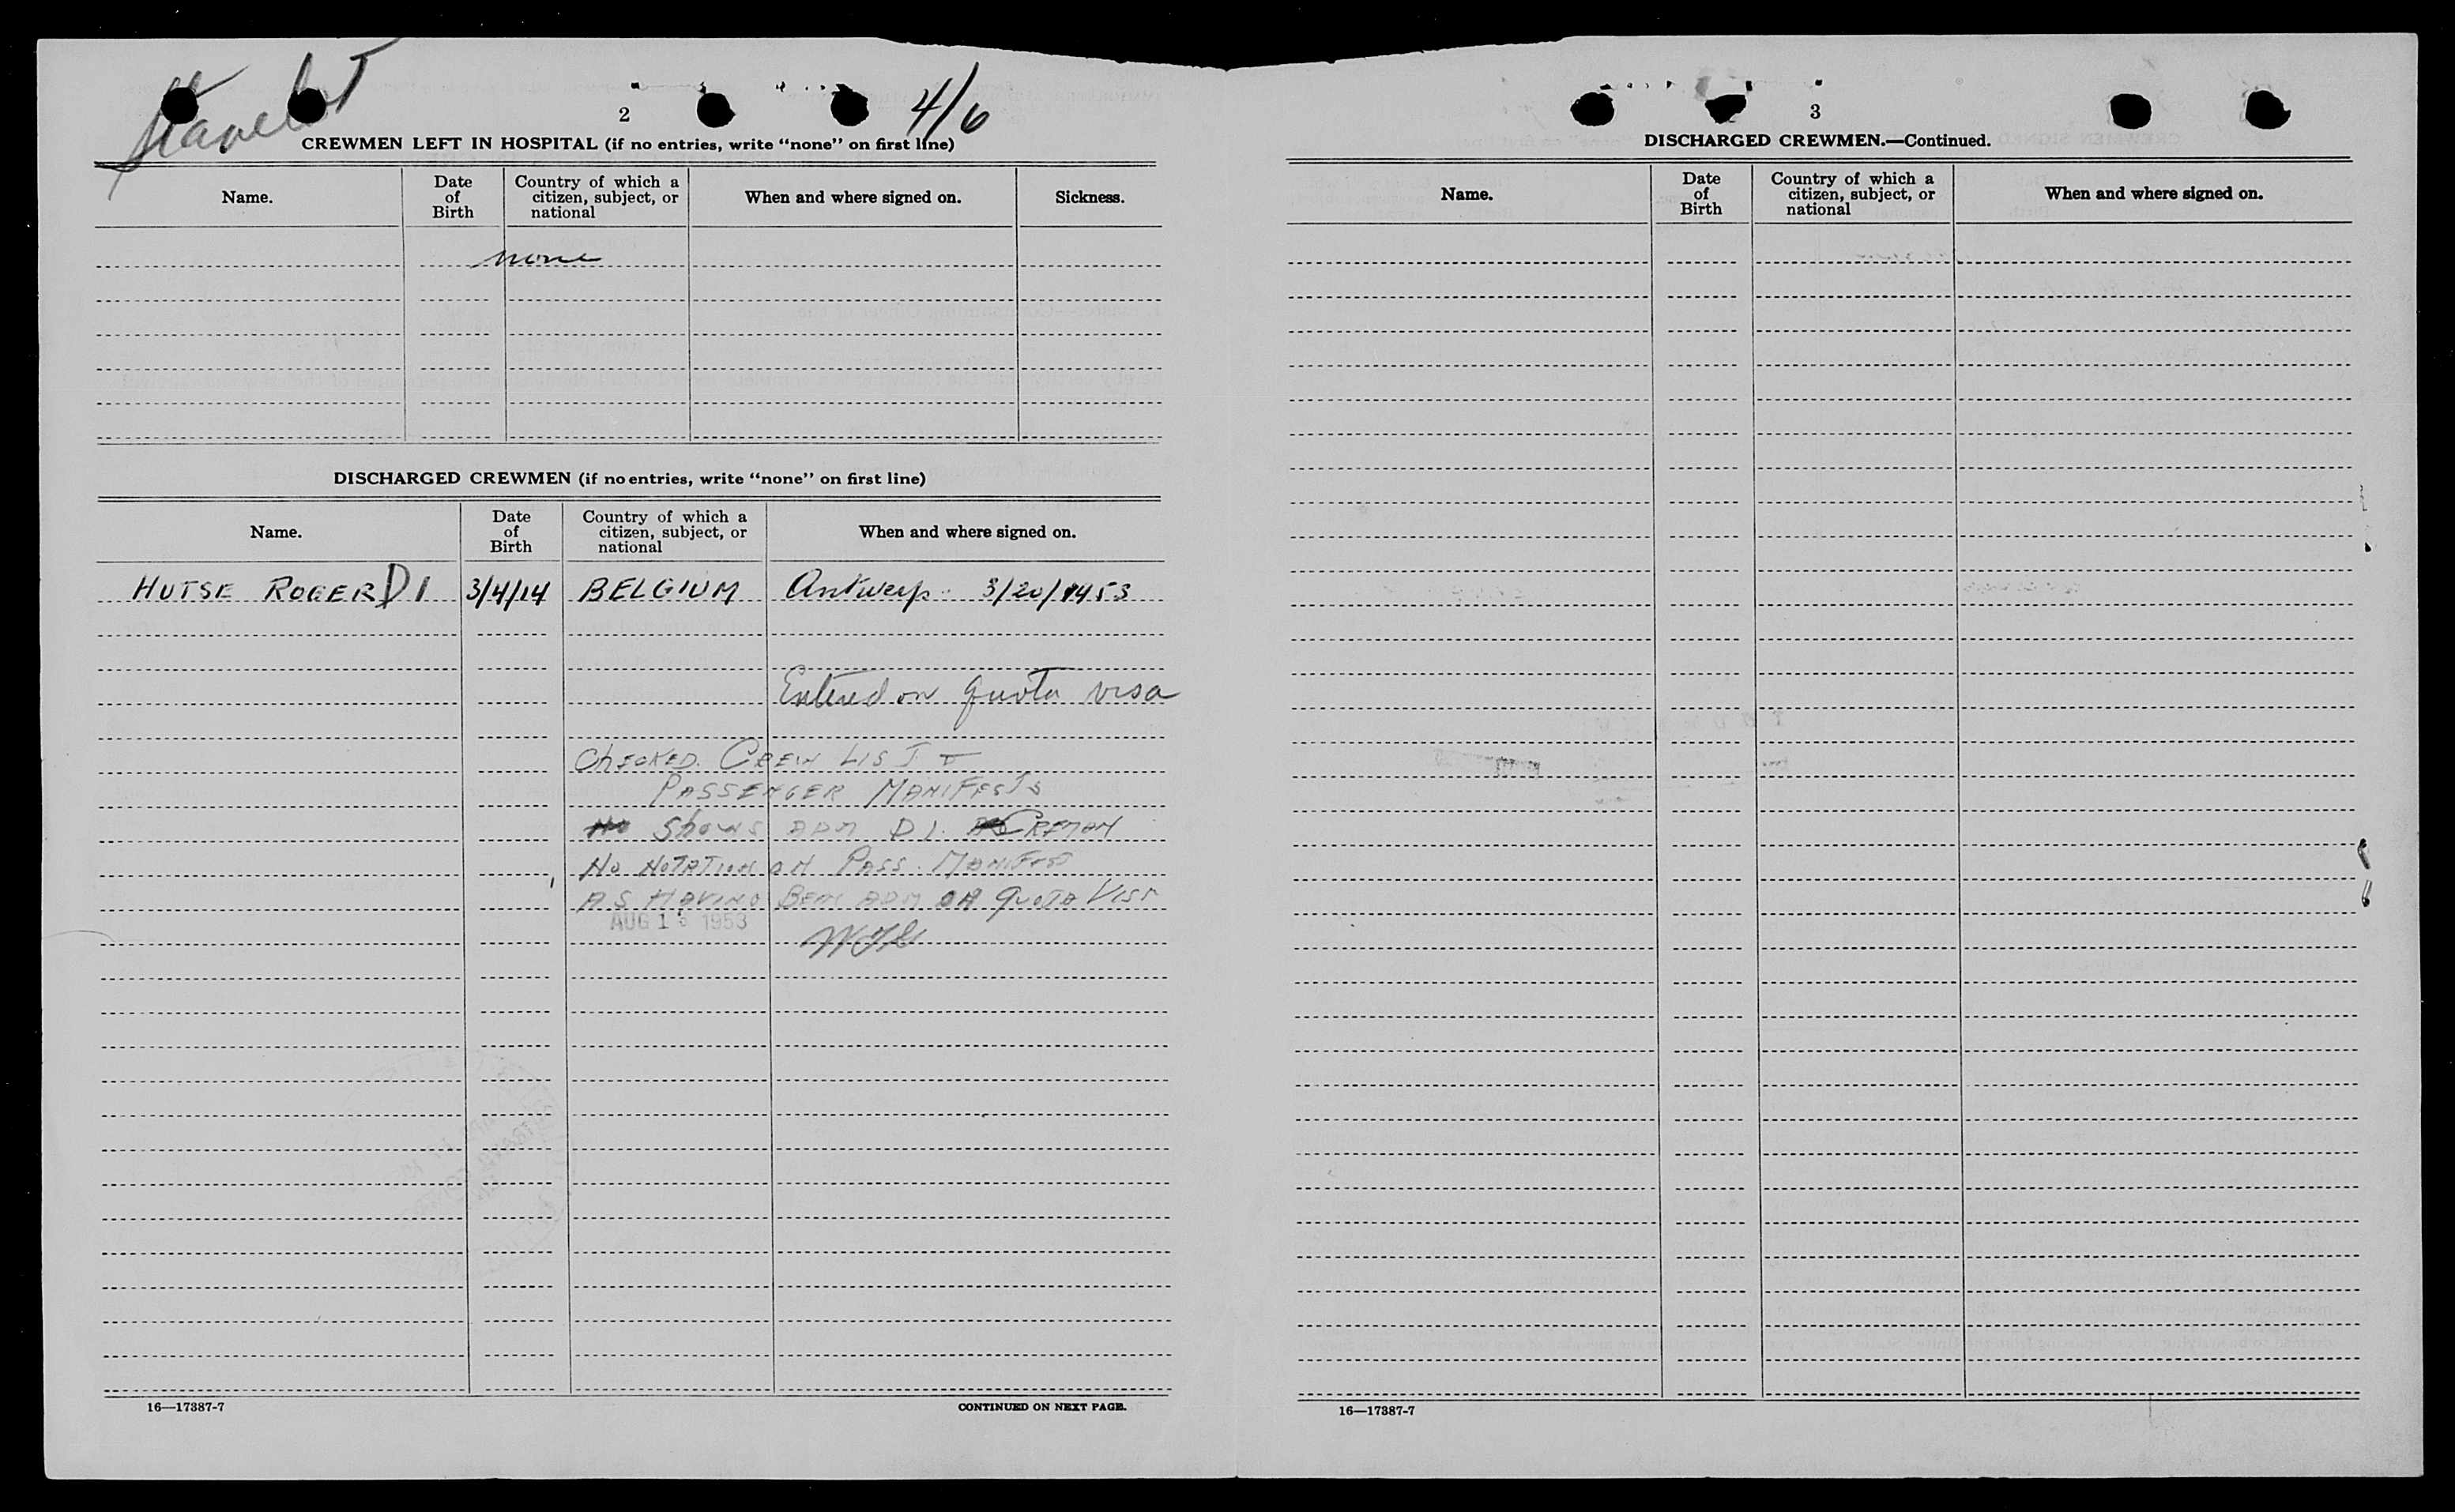 Stavelot
4/6
2
CREWMEN LEFT IN HOSPITAL (if no entries, write “none” on first line)
Name.
Date of Birth
Country of which a citizen, subject, or national
When and where signed on.
Sickness.
none
DISCHARGED CREWMEN (if no entries, write “none” on first line)
Name.
Date of Birth
Country of which a citizen, subject, or national
When and where signed on.
HUTSE ROGER D1 3/4/14 BELGIUM Antwerp 3/20/1953
Entered on quota visa
CHECKED CREW LIST &
PASSENGER MANIFESTS
SHOWS ADM D1
NO NOTATION ON PASS. MANIFEST
AS HAVING BEEN ADM ON QUOTA VISA
AUG 1 1953
16—17387-7
CONTINUED ON NEXT PAGE.
3
DISCHARGED CREWMEN.—Continued.
Name.
Date of Birth
Country of which a citizen, subject, or national
When and where signed on.
16—17387-7